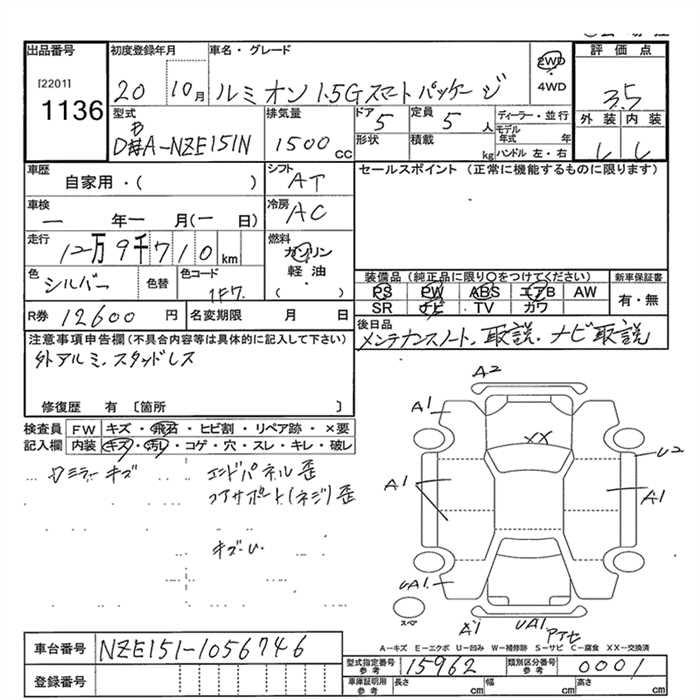 出品番号 初度登録年月 車名・グレード 2WD 評価点
[2201] 1136 20 10月 ルミオン 1.5G スマートパッケージ 4WD 3.5
型式 排気量 ドア 定員 ディーラー・並行 外装 内装
DBA-NZE151N 1500cc 5 5人 モデル年式 年
形状 積載 kg ハンドル 左・右
車歴 シフト セールスポイント (正常に機能するものに限ります)
自家用・( ) AT
車検 冷房
一 年 一 月(一 日) AC
走行 燃料
12万9千710km ガソリン
軽油・
( )
色 色替 色コード
シルバー 1F7.
装備品 (純正品に限り○をつけてください) 新車保証書
PS PW ABS エアB AW 有・無
SR ナビ TV カワ
R券 12600円 名変期限 月 日
後日品
メンテナンスノート、取説、ナビ取説
注意事項申告欄(不具合内容等は具体的に記入して下さい)
外アルミ、スタッドレス
修復歴 有 〔箇所 〕
検査員 FW キズ・飛石・ヒビ割・リペア跡・×要
記入欄 内装 キズ・汚れ・コゲ・穴・スレ・キレ・破レ
ミラーキズ エンドパネル歪
コアサポート(ネジ)歪
キズ・U
A2
A1
XX
U2
A1
A1
UA1
A1
UA1
スペ
A−キズ E−エクボ U−凹み W−補修跡 S−サビ C−腐食 XX−交換済
車台番号 NZE151-1056746
登録番号
型式指定番号 参考 15962 類別区分番号 参考 0001
車庫証明用 参考 長さ cm 幅 cm 高さ cm